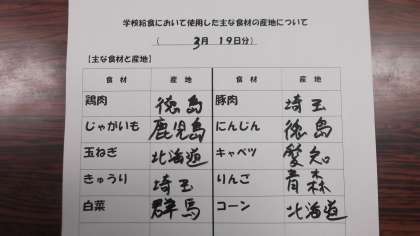 学校給食において使用した主な食材の産地について
( 3月 19日分)
【主な食材と産地】
食材 産地 食材 産地
鶏肉 徳島 豚肉 埼玉
じゃがいも 鹿児島 にんじん 徳島
玉ねぎ 北海道 キャベツ 愛知
きゅうり 埼玉 りんご 青森
白菜 群馬 コーン 北海道